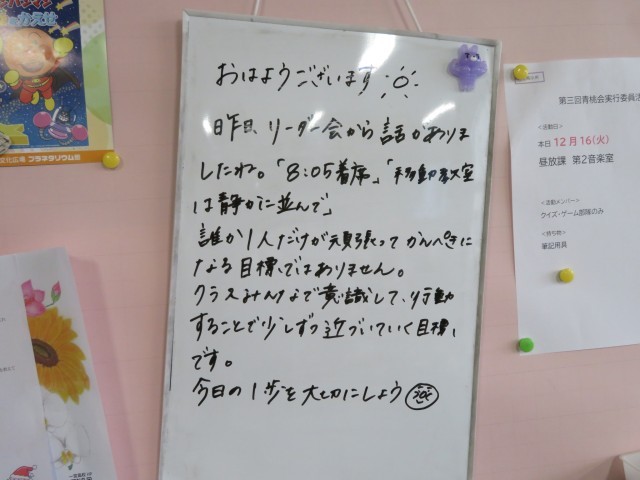 おはようございます
昨日、リーダー会から話がありま
したね。「8:05着席」「移動教室
は静かに並んで」
誰か1人だけが頑張ってかんぺきに
なる目標ではありません。
クラスみんなで意識して、行動
することで少しずつ近づいていく目標
です。
今日の1歩を大切にしよう
プラネタリウム
第三回青桃会実行委員活
<活動日>
本日12月16(火)
昼放課 第2音楽室
<活動メンバー>
クイズ・ゲーム部隊のみ
<持ち物>
筆記用具